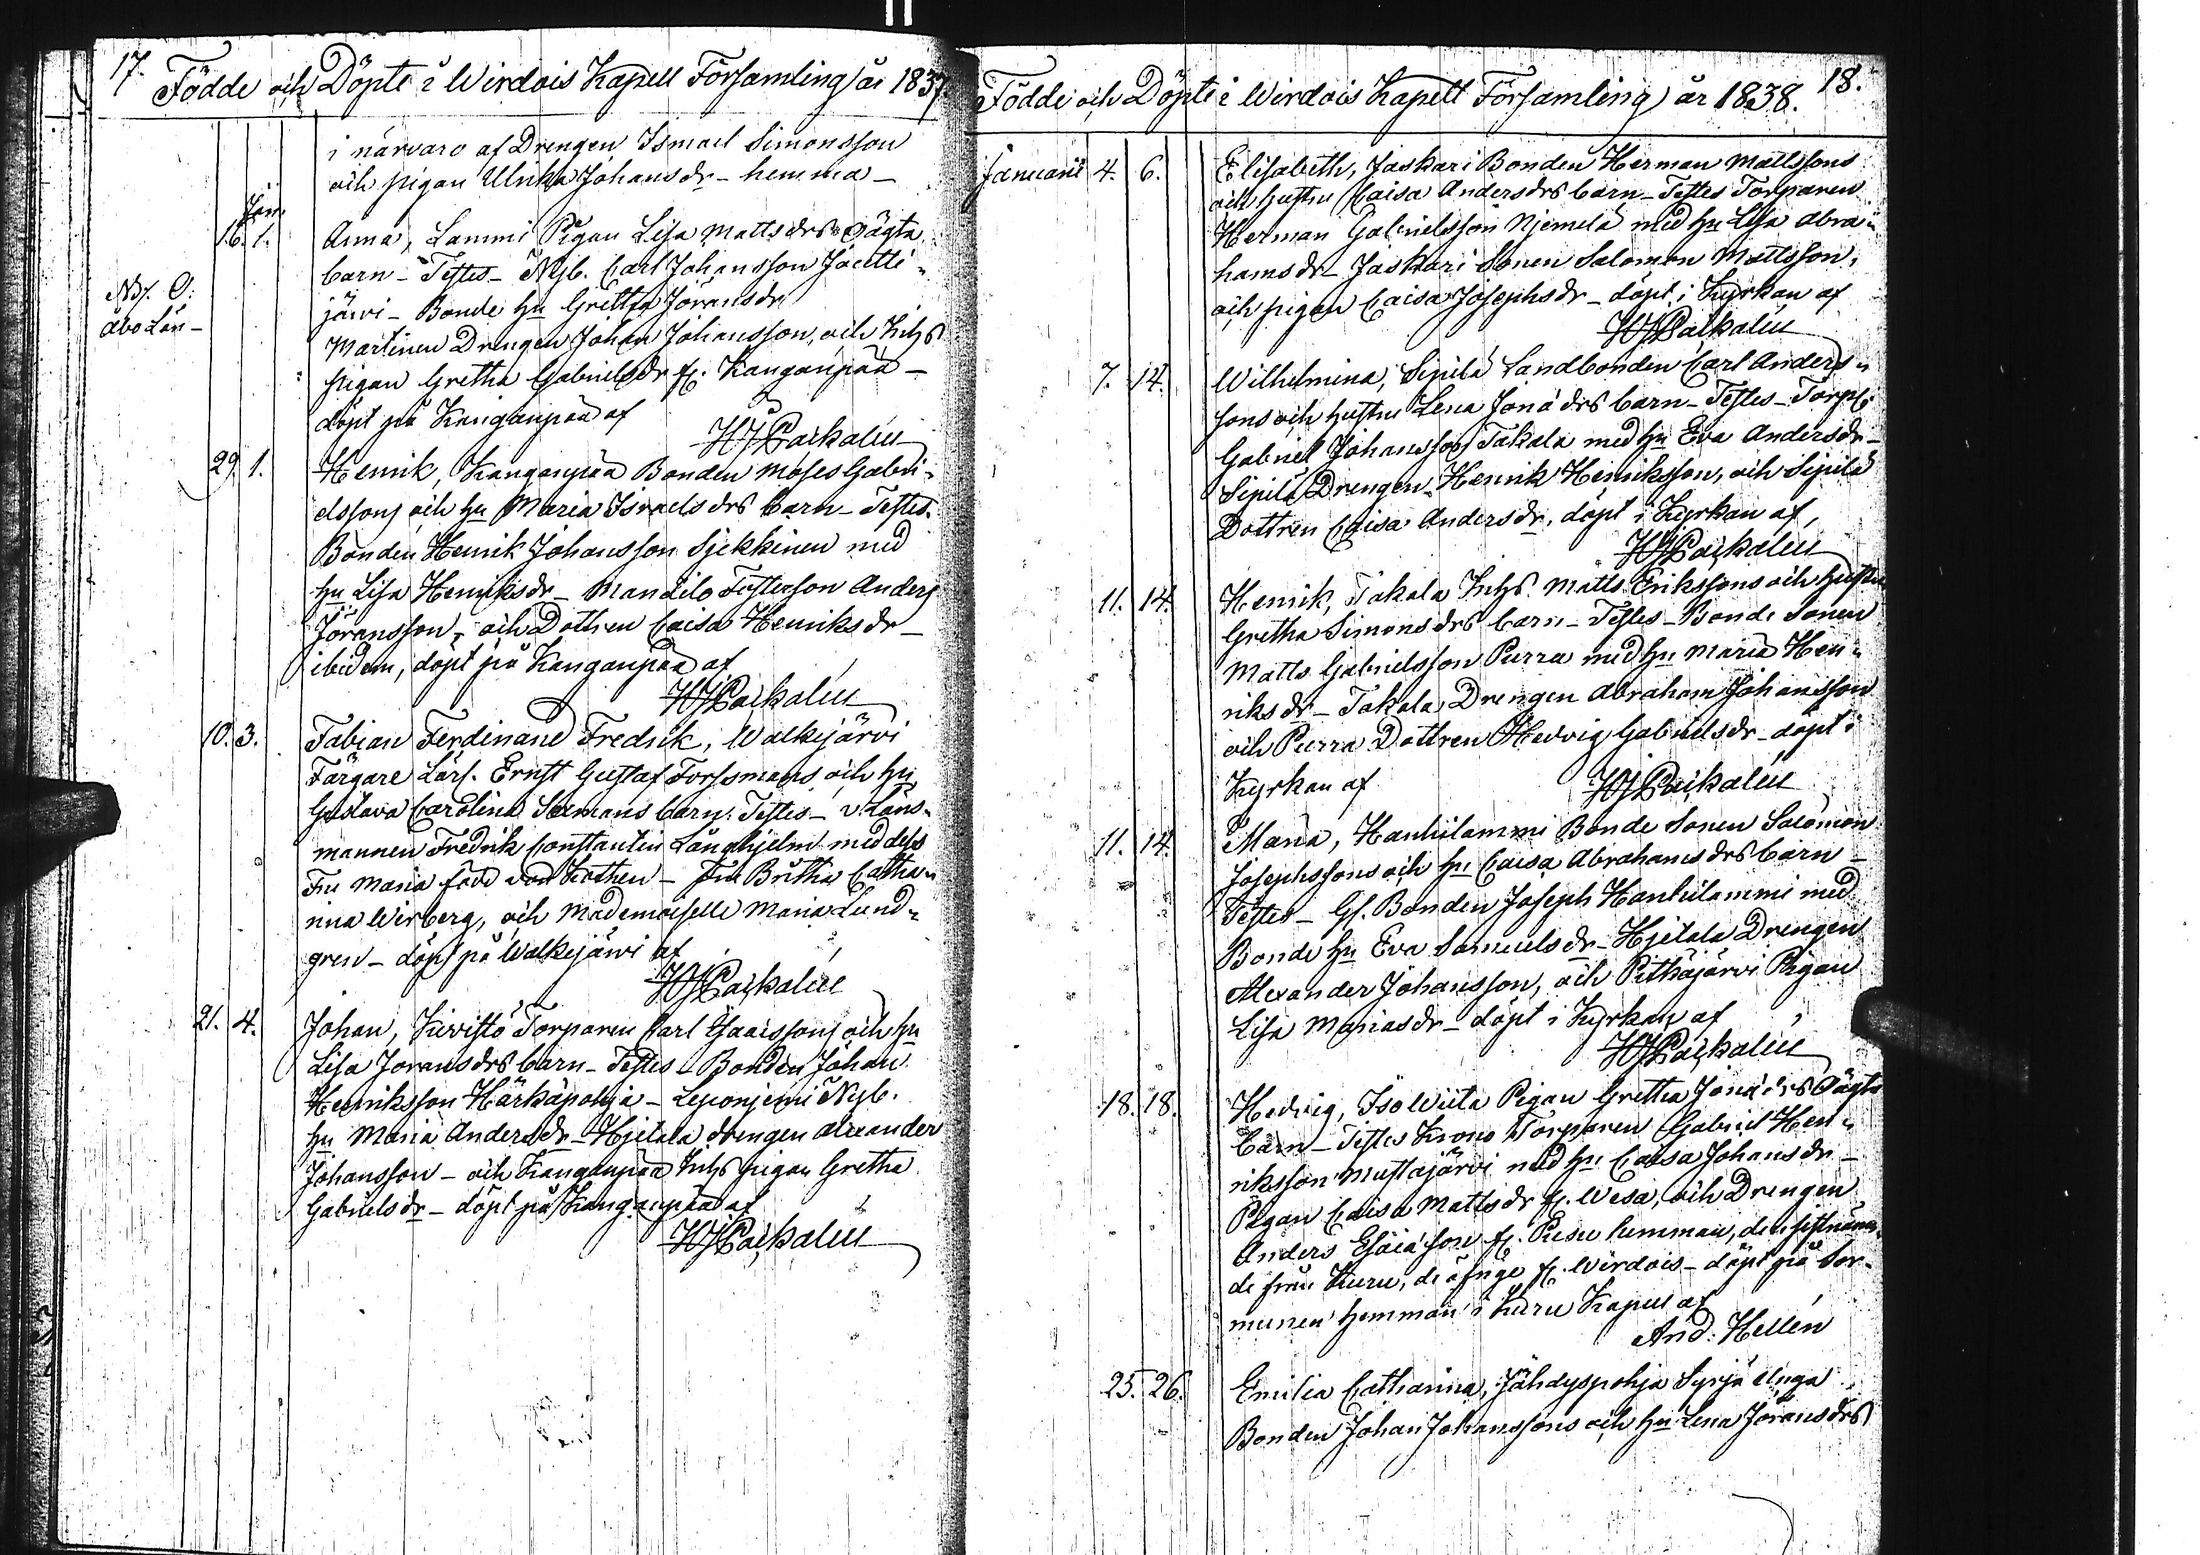 17. Födde och Döpte i Wirdois Kapell Församling år 1837
i närvaro af Drengen Ismael Simonsson
och pigan Ulrika Johansdr - hemma -
Jan.
16. 1. Anna, Lammi Pigan Lisa Mattsdrs oägta
barn - Testes - Nyb. Carl Johansson
järvi - Bonde hu Gretha Jöransdr
Åbo Län -
Martinen Drengen Johan Johansson, och Inhs
pigan Gretha Gabrielsdr fr. Kanganpää -
döpt på Kanganpää af
HJPaikalén
29. 1. Henrik, Kanganpää Bonden Moses Gabri-
elssons och hu Maria Israelsdrs barn - Testes.
Bonden Henrik Johansson Sjekkinen med
hu Lisa Henriksdr - Mandilo Fosterson Anders
Jöransson, och Dottren Caisa Henriksdr -
ibidem, döpt på Kanganpää af
HJPaikalén
10. 3. Fabian Ferdinand Fredrik, Walkijärvi
Färgare Lärl. Ernst Gustaf Forssmans och hu
Gustava Carolina barn. Testes - v. Läns-
mannen Fredrik Constantin Långhjelm med dess
Fru Maria född von Kothen - Fru Britha Catha-
rina Wirberg, och Mademoiselle Maria Lund-
gren - döpt på Walkijärvi af
HJPaikalén
21. 4. Johan, Kivistö Torparen Carl Esaiassons och hu
Lisa Jöransdrs barn - Testes - Bonden Johan
Henriksson Härkäpohja - Leponjemi Nyb.
hu Maria Andersdr - Hjetala drengen Alexander
Johansson - och Kanganpää Inhs pigan Gretha
Gabrielsdr - döpt på Kanganpää af
HJPaikalén
Födde och Döpte i Wirdois Kapell Församling år 1838. 18.
Januarii 4. 6. Elisabeth, Jaskari Bonden Herman Mattssons
och hustru Caisa Andersdrs barn - Testes Torparen
Herman Gabrielsson Njemelä med hu Lisa Abra-
hamsdr - Jaskari Sonen Salomon Mattsson,
och pigan Caisa Josephsdr - döpt i Kyrkan af
HJPaikalén
7. 14. Wilhelmina, Sipilä Landbonden Carl Anders-
sons och hustru Lena Jonædrs barn - Testes - Torp.
Gabriel Johansson Takala med hu Eva Andersdr -
Sipilä Drengen Henrik Henriksson, och Sipilä
Dottren Caisa Andersdr, döpt i Kyrkan af,
HJPaikalén
11. 14. Henrik, Takala Inhs. Matts Erikssons och hustru
Gretha Simonsdrs barn - Testes - Bonde Sonen
Matts Gabrielsson Purra med hu Maria Hen-
riksdr - Takala Drengen Abraham Johansson
och Purra Dottren Hedvig Gabrielsdr - döpt i
Kyrkan af
HJPaikalén
11. 14. Maria, Hanhilammi Bonde Sonen Salomon
Josephssons och hu Caisa Abrahamsdrs barn -
Testes - Gl. Bonden Joseph Hanhilammi med
Bonde hu Eva Samuelsdr - Hjetala Drengen
Alexander Johansson, och Pitkäjärvi Pigan
Lisa Mariasdr - döpt i Kyrkan af
HJPaikalén
18. 18. Hedvig, Iso Wiita Pigan Gretha Jonædrs oägta
barn - Testes Krono Torparen Gabriel Hen-
riksson Mustajärvi med hu Caisa Johansdr -
Pigan Caisa Mattsdr fr. Wesa, och Drengen
Anders Esaiæson fr. Pusu hemman, den sistnämn-
de från Kuru, de öfrige fr. Wirdois - döpt på Sor-
munen hemman i Kuru Kapell af
And: Hellén
25. 26. Emilia Catharina, Jähdyspohja Syrjä unga
Bonden Johan Johanssons och hu Lena Jöransdrs